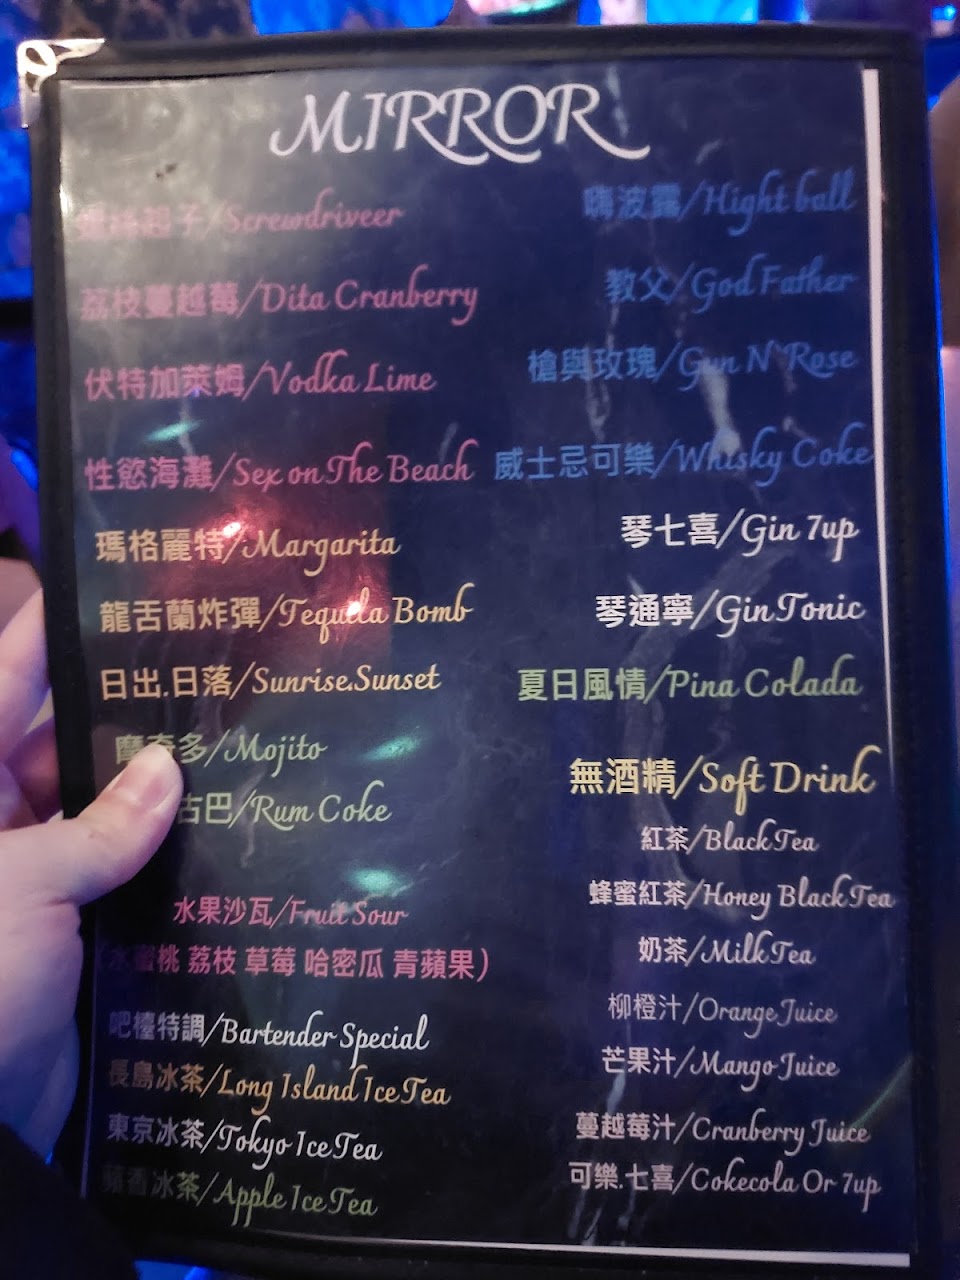 MIRROR
螺絲起子/Screwdriveer
荔枝蔓越莓/Dita Cranberry
伏特加萊姆/Vodka Lime
性慾海灘/Sex on The Beach
瑪格麗特/Margarita
龍舌蘭炸彈/Tequila Bomb
日出.日落/Sunrise.Sunset
摩奇多/Mojito
古巴/Rum Coke
水果沙瓦/Fruit Sour
(水蜜桃 荔枝 草莓 哈密瓜 青蘋果)
吧檯特調/Bartender Special
長島冰茶/Long Island Ice Tea
東京冰茶/Tokyo Ice Tea
蘋香冰茶/Apple Ice Tea
嗨波露/Hight ball
教父/God Father
槍與玫瑰/Gun N Rose
威士忌可樂/Whisky Coke
琴七喜/Gin 7up
琴通寧/Gin Tonic
夏日風情/Pina Colada
無酒精/Soft Drink
紅茶/Black Tea
蜂蜜紅茶/Honey Black Tea
奶茶/Milk Tea
柳橙汁/Orange Juice
芒果汁/Mango Juice
蔓越莓汁/Cranberry Juice
可樂.七喜/Cokecola Or 7up